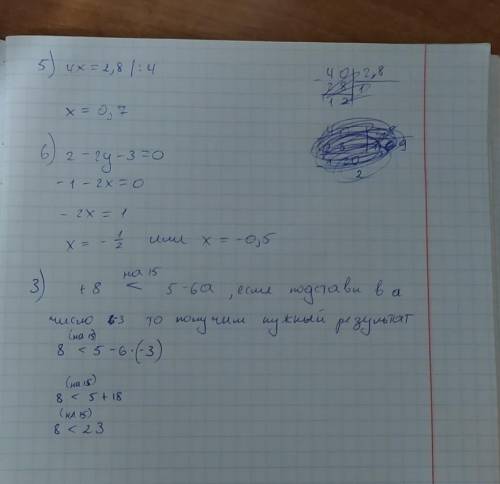 5) 4x = 2,8 | : 4
x = 0,7
- 40 | 2,8
28 | 1
12
2
6) 2 - 2y - 3 = 0
- 1 - 2x = 0
- 2x = 1
x = - 1/2 или x = -0,5
на 15
3) +8 < 5 - 6a, если подставь в a
число -3 то получим нужный результат
(на 15)
8 < 5 - 6 · (-3)
(на 15)
8 < 5 + 18
(на 15)
8 < 23